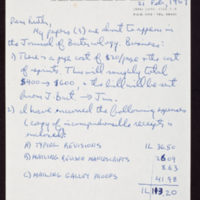 21 Feb, 1969
Dear Ruth,
My papers (3) are about to appear in
the Journal of Bacteriology. Business:
1) There is a page cost of $20/page + the cost
of reprints. This will roughly total
$400 → $600 + the bill will be sent
from J. Bact → Jim.
2) I have incurred the following expenses
(copy of incomprehensible receipts is
enclosed)
A) TYPING REVISIONS IL 36.50
B) MAILING REVISED MANUSCRIPTS 26.09
8.63
C) MAILING GALLEY PROOFS 41.98
IL 113.20